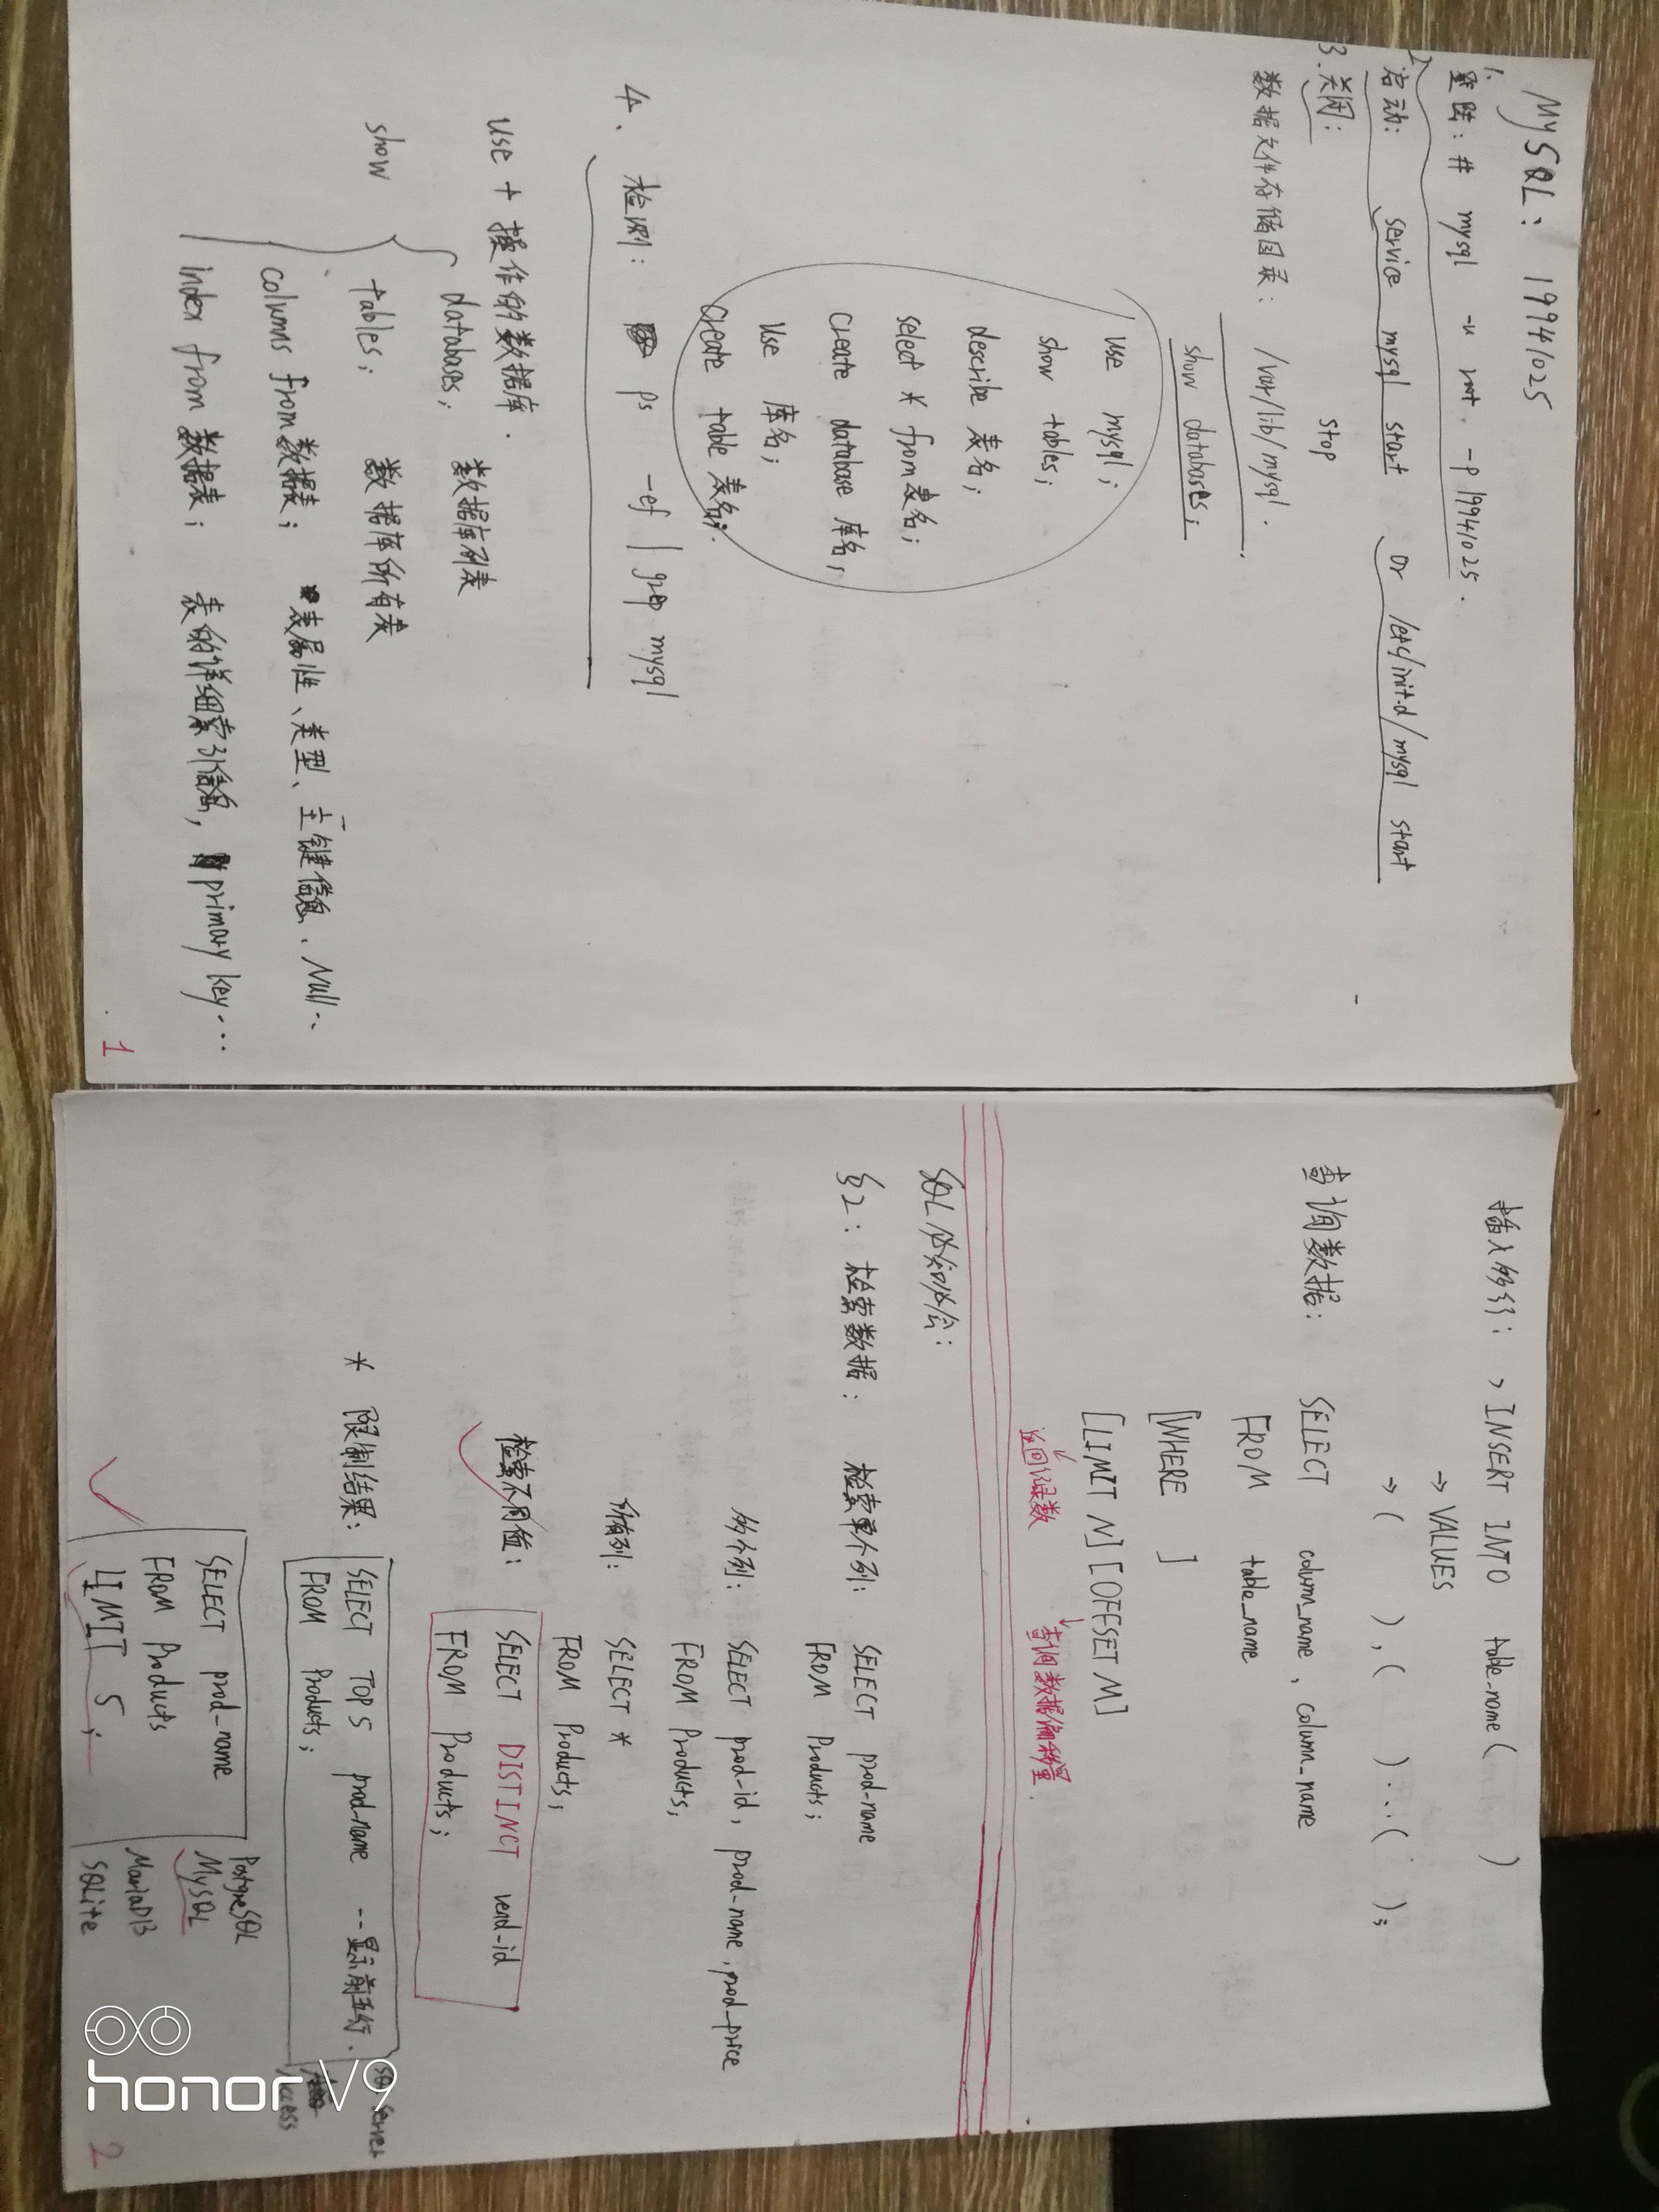 MySQL: 19941025
1. 登陆: # mysql -u root -p 19941025.
2. 启动: service mysql start or /etc/init.d/mysql start
3. 关闭: stop
数据文件存储目录: /var/lib/mysql.
show databases;
use mysql;
show tables;
describe 表名;
select * from 表名;
create database 库名;
use 库名;
create table 表名;
4、检测: ps -ef | grep mysql
use + 操作的数据库.
show databases; 数据库列表
tables; 数据库所有表
columns from 数据表; 表属性、类型、主键信息、Null...
index from 数据表; 表的详细索引信息, primary key...
1
插入多行: > INSERT INTO table-name ( )
→ VALUES
→ ( ), ( ) ... ( );
查询数据: SELECT column_name, column_name
FROM table_name
[WHERE ]
[LIMIT N] [OFFSET M]
返回记录数 查询数据偏移量.
SQL必知必会:
§2: 检索数据: 检索单个列: SELECT prod-name
FROM Products;
多个列: SELECT prod-id, prod-name, prod_price
FROM Products;
所有列: SELECT *
FROM Products;
检索不同值: SELECT DISTINCT vend-id
FROM Products;
* 限制结果: SELECT TOP 5 prod-name -- 显示前五行.
FROM Products;
SQL Server
Access
SELECT prod_name
FROM Products
LIMIT 5;
PostgreSQL
MySQL
MariaDB
SQLite
2
honor V9